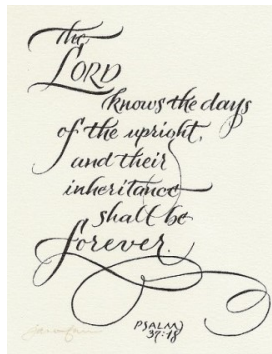 The
LORD
knows the days
of the upright,
and their
inheritance
shall be
forever.
PSALM
37:18